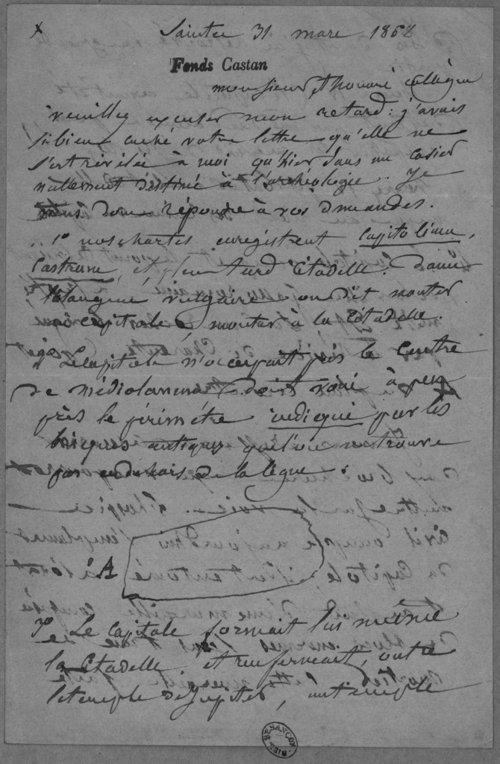 x
Saintes 31 mars 1868
Fonds Castan
monsieur, & honoré collègue
veuillez excuser mon retard : j'avais
si bien caché votre lettre qu'elle ne
s'est révélée à moi qu'hier dans un casier
nullement destiné à l'archéologie. je
vais donc répondre à vos demandes.
1º nos chartes enregistrent Capitolium,
Castrum, et plus tard Citadelle. Dans
langue vulgaire on dit monter
capitole, monter à la Citadelle.
2º Le Capitole n'occupait pas le Centre
de médiolanum
près le périmètre indiqué par les
briques antiques que l'on retrouve
par endroits
A
3º Le Capitole formait lui même
la Citadelle, et renfermait, outre
le temple de Jupiter, un temple
BIBL. BESANCON